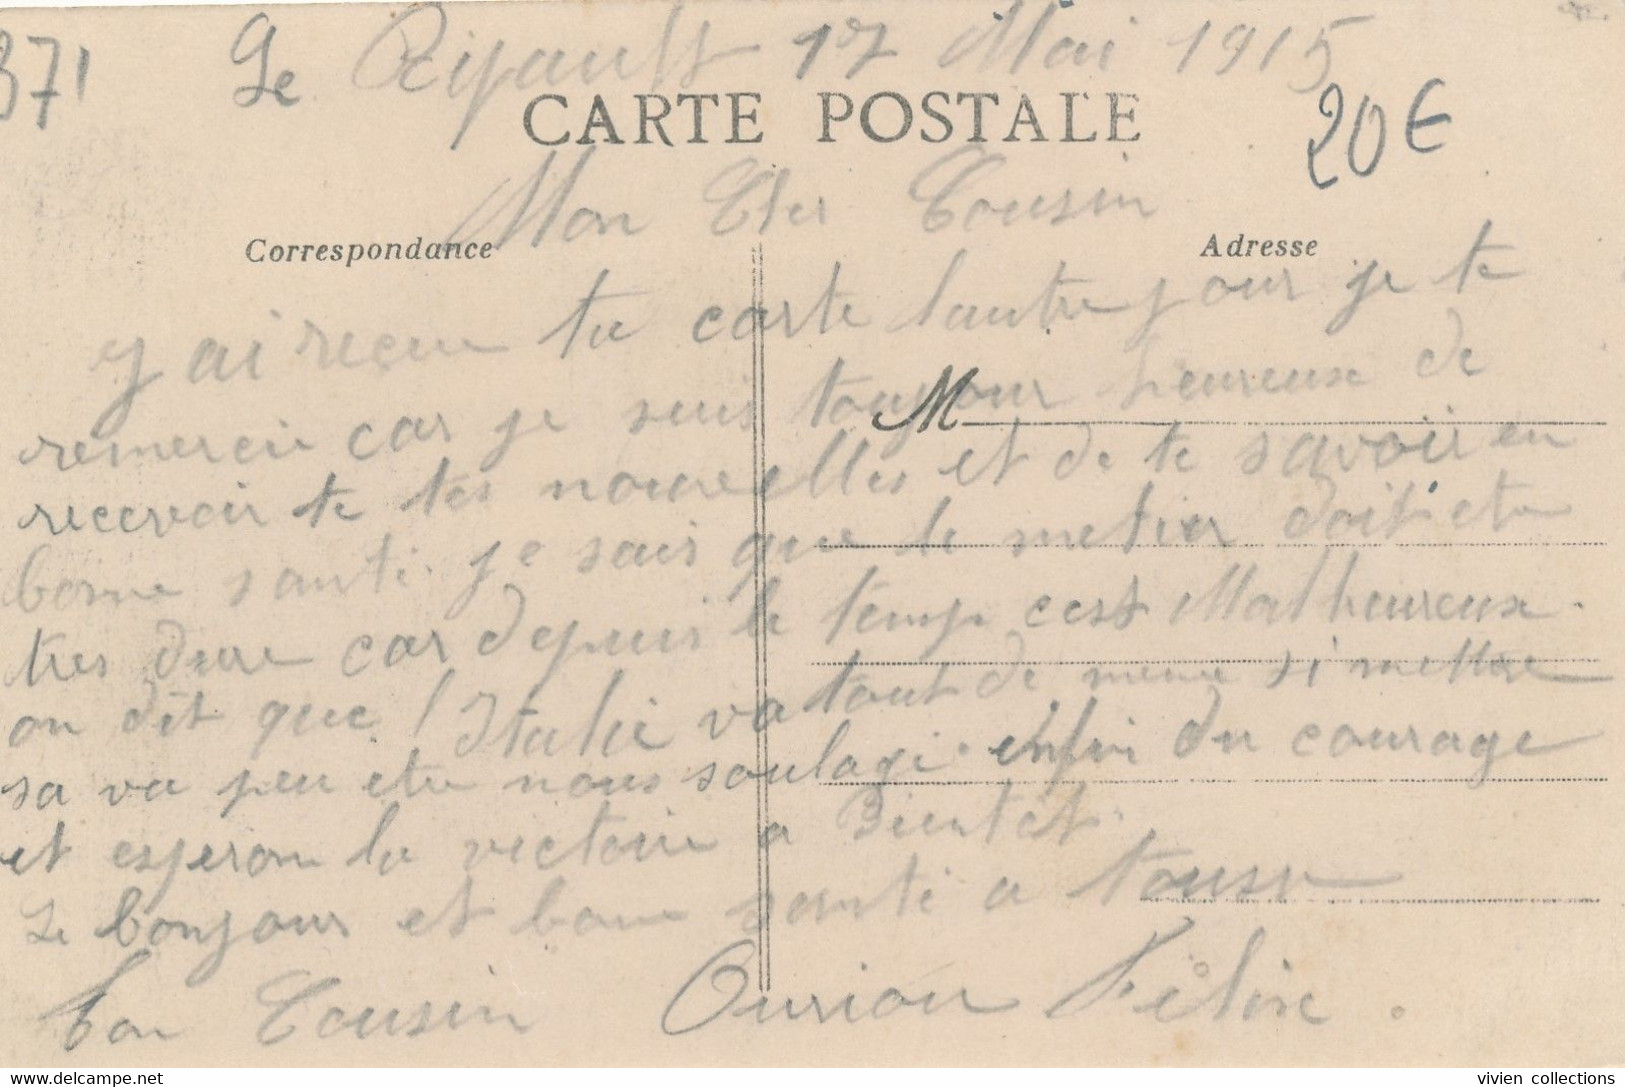 371
Le Ripault 17 Mai 1915
CARTE POSTALE
20€
Mon Cher Cousin
Correspondance
Adresse
J ai reçue ta carte lautre jour je te
M
remercie car je suis toujour heureux de
recevoir te tes nouvelles et de te savoir en
bonne santé. Je sais que le metier doit etre
tres dure car depuis le temp cest Malheureux.
on dit que l'Italie va tout de meme si mettre
sa va peu etre nous soulagé. enfin du courage
et esperon la victoire a Bientot.
Le bonjour et bonne santé a tous
ton Cousin Ourion Félix.
vivien collections